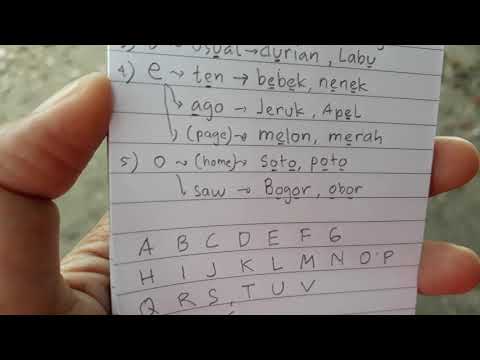 usual → durian, Labu
4) e → ten → bebek, nenek
ago → Jeruk, Apel
(page) → melon, merah
5) o → (home) → Soto, poto
saw → Bogor, obor
A B C D E F G
H I J K L M N O P
Q R S T U V